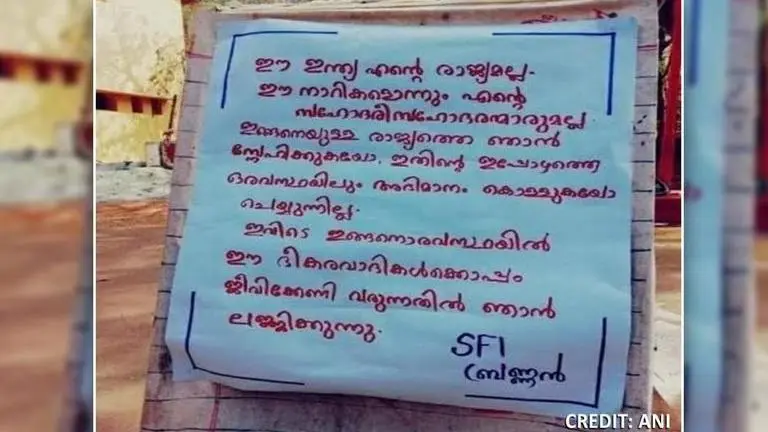 ഈ ഇന്ത്യ എന്റെ രാജ്യമല്ല.
ഈ നാറികളൊന്നും എന്റെ
സഹോദരീസഹോദരന്മാരുമല്ല
ഇങ്ങനെയുള്ള രാജ്യത്തെ ഞാൻ
സ്നേഹിക്കുകയോ, ഇതിന്റെ ഇപ്പോഴത്തെ
ഒരവസ്ഥയിലും അഭിമാനം കൊള്ളുകയോ
ചെയ്യുന്നില്ല.
ഇവിടെ ഇങ്ങനൊരവസ്ഥയിൽ
ഈ ഭീകരവാദികൾക്കൊപ്പം
ജീവിക്കേണി വരുന്നതിൽ ഞാൻ
ലജ്ജിക്കുന്നു.
SFI
ബ്രണ്ണൻ
CREDIT: ANI